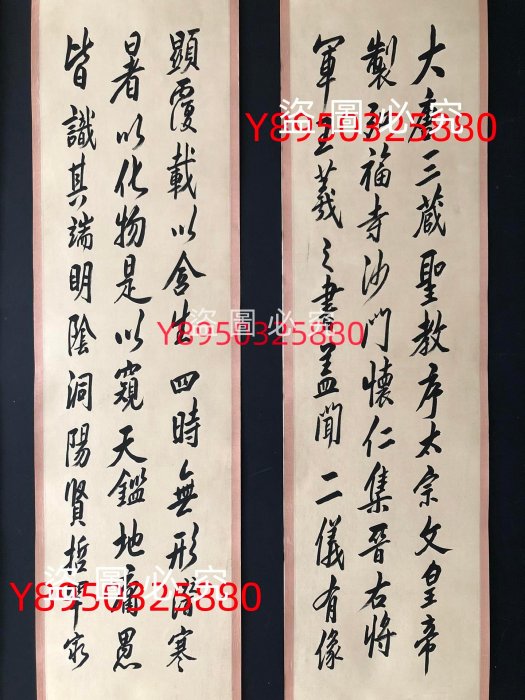 大唐三藏聖教序太宗文皇帝
製弘福寺沙門懷仁集晉右將
軍王羲之書蓋聞二儀有像
顯覆載以含生四時無形潛寒
暑以化物是以窺天鑑地庸愚
皆識其端明陰洞陽賢哲罕窮
盜圖必究
Y8950325880
盜圖必究
Y8950325880
盜圖必究
Y8950325880